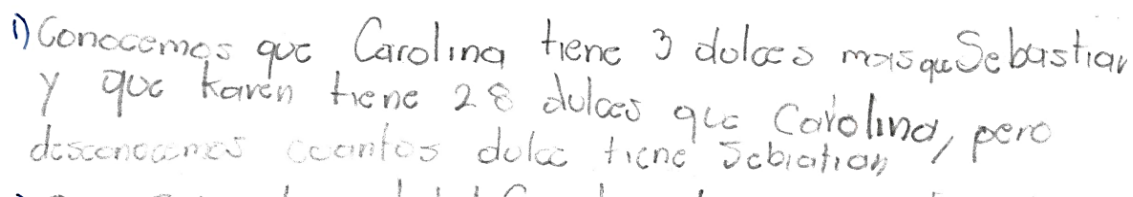 1) Conocemos que Carolina tiene 3 dulces mas que Sebastian
y que karen tiene 28 dulces que Carolina, pero
desconocemos cuantos dulce tiene Sebiatian